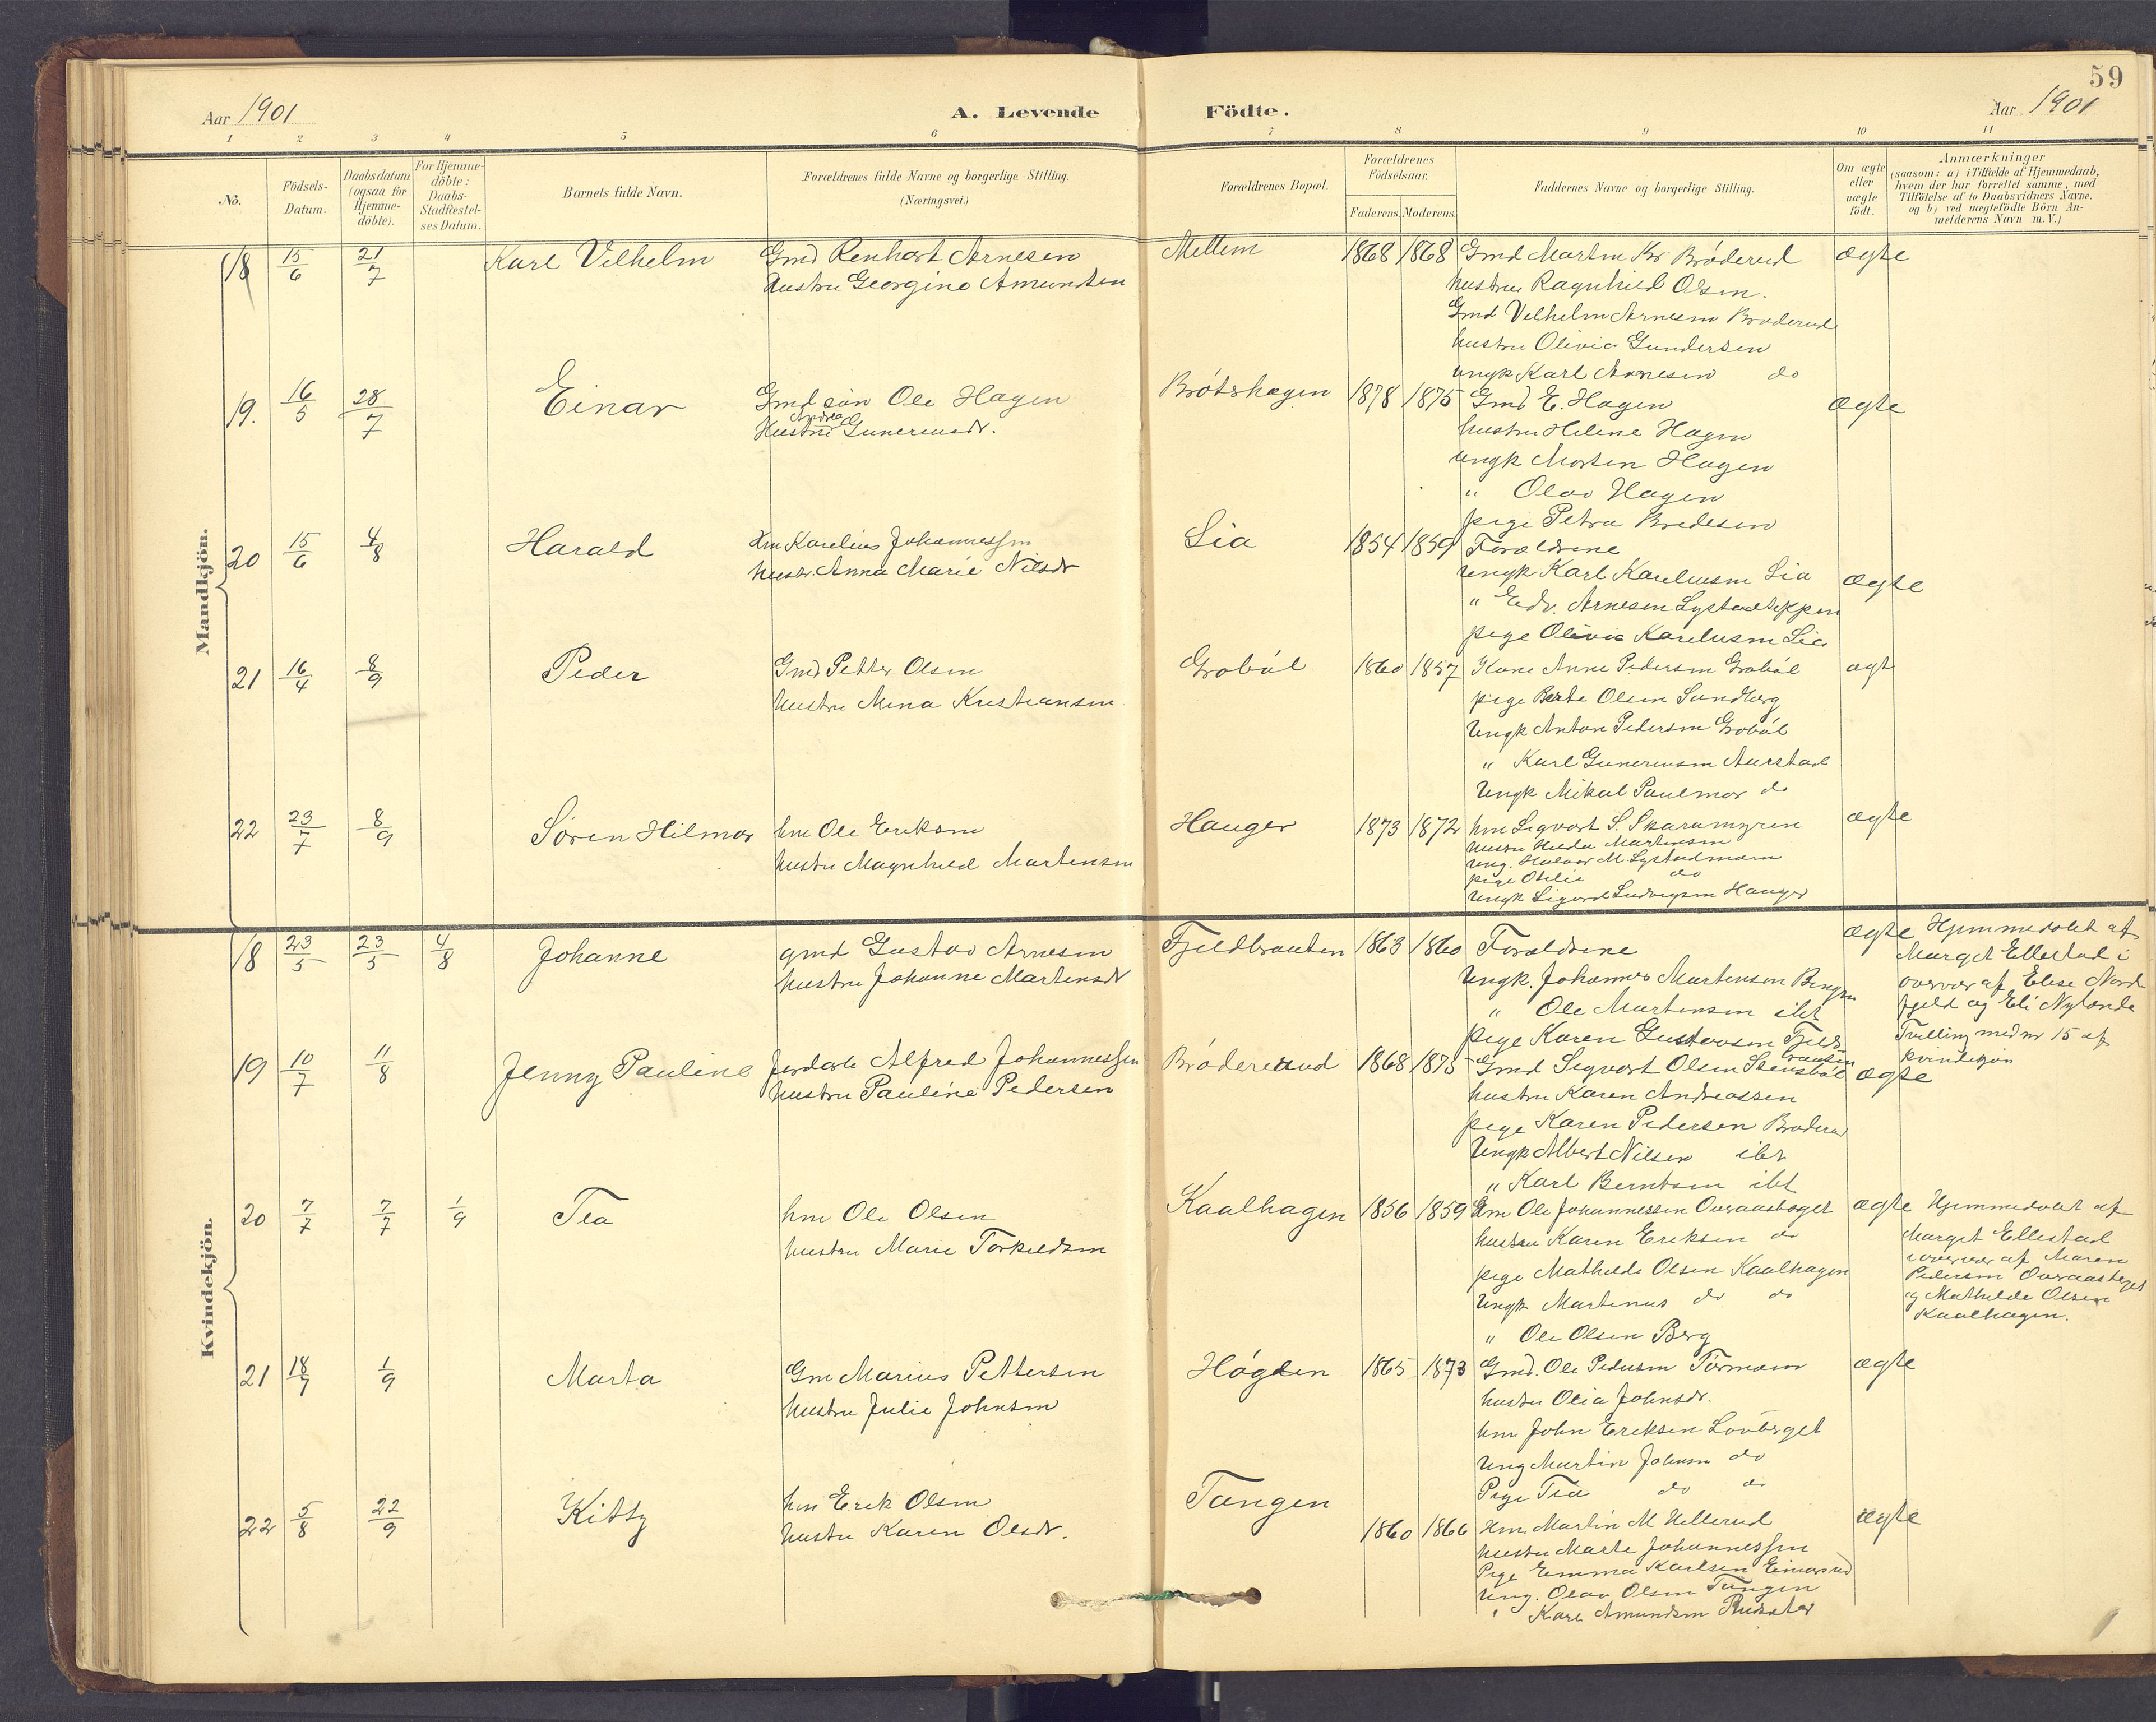 59
Aar 1901
A. Levende Födte.
Aar 1901
1 2 3 4 5 6 7 8 9 10 11
No.
Födsels-Datum.
Daabsdatum (ogsaa for Hjemme-döbte).
For Hjemme-döbte: Daabs-Stadfæstel-ses Datum.
Barnets fulde Navn.
Forældrenes fulde Navne og borgerlige Stilling.
(Næringsvei.)
Forældrenes Bopæl.
Forældrenes Födselsaar.
Faderens. Moderens.
Faddernes Navne og borgerlige Stilling.
Om ægte eller uægte födt.
Anmærkninger
(saasom: a) i Tilfælde af Hjemmedaab, hvem der har forrettet samme, med Tilföielse af to Daabsvidners Navne, og b) ved uægtefödte Börn Anmelderens Navn m. V.)
Mandkjön.
18 15/6 21/7 Karl Vilhelm Gmd Renhart Arnesen Mellem 1868 1868 Gmd Martin Kr Bröderud ægte
hustru Georgine Amundsen hustru Ragnhild Olsen.
Gmd Vilhelm Arnesen Bröderud
hustru Olivia Gundersen
ungk Karl Arnesen do
19. 16/5 28/7 Einar Gmd sön Ole Hagen Brötshagen 1878 1875 Gmd E. Hagen ægte
Hustru Andrea Gunereusdr. hustru Helene Hagen
ungk Morten Hagen
" Olav Hagen
pige Petra Bredesen
20 15/6 4/8 Harald Hm Karelius Johannessen Lia 1854 1859 Forældrene
hustr. Anna Marie Nilsdr ungk Karl Kareliusen Lia ægte
" Edv. Arnesen
pige Olivia Kareliusen Lia
21 16/4 8/9 Peder Gmd Petter Olsen Graböl 1860 1857 Kone Anne Pedersen Graböl ægt
hustru Mina Kristiansen pige Berte Olsen Sundberg
Ungk Anton Pedersen Graböl
" Karl Gunereusen Aurstad
Ungk Mikal Paulmor do
22 23/7 8/9 Sören Hilmar hm Ole Eriksen Hauger 1873 1872 hm Sigvart S. Skaramyren ægte
hustru Magnhild Martensen hustru Hilda Martinsen
ung. Halvor M. Lystadmoen
pige Otilie do
Ungk Sigurd Ludvigsen Hauger
Kvindekjön.
18 23/5 23/5 4/8 Johanne gmd Gustav Arnesen Fjeldbrauten 1863 1860 Forældrene ægte Hjemmedöbt af
hustru Johanne Martensdr Ungk. Johannes Martensen Bergen Marget Ellestad i
" Ole Martensen ibt overvær af Elise Nord
pige Karen Gustavsen Fjeldbrauten fjeld og Eli Nylende
Tvilling med nr 15 af
kvindekjön
19 10/7 11/8 Jenny Pauline Jordarb Alfred Johannessen Bröderud 1868 1875 Gmd Sigvart Olsen Stensböl ægte
hustru Pauline Pedersen hustru Karen Andreassen
pige Karen Pedersen Bröderud
Ungk Albert Nilsen ibt
" Karl Berntsen ibt
20 7/7 7/7 1/9 Tea hm Ole Olsen Kaalhagen 1856 1859 Hm Ole Johannessen Overaasberget ægte Hjemmedöbt af
hustru Marie Torkildsen hustru Karen Eriksen do Marget Ellestad
pige Mathilde Olsen Kaalhagen i overvær af Maren
Ungk Martinus do do Pedersen Overaasberget
" Ole Olsen Berg og Mathilde Olsen
Kaalhagen.
21 18/7 1/9 Marta Gm Marius Pettersen Högden 1865 1873 Gmd. Ole Pedersen Törmoen ægte
hustru Julie Johnsen hustru Olia Johnsdr.
hm John Eriksen Lövberget
Ung Martin Johnsen do
Pige Tea do do
22 5/8 22/9 Kitty hm Erik Olsen Tangen 1860 1866 Hm. Martin M Hellerud ægte
hustru Karen Olsdr. hustru Marte Johannessen
Pige Emma Karlsen Einarsrud
Ung. Olav Olsen Tangen
" Karl Amundsen